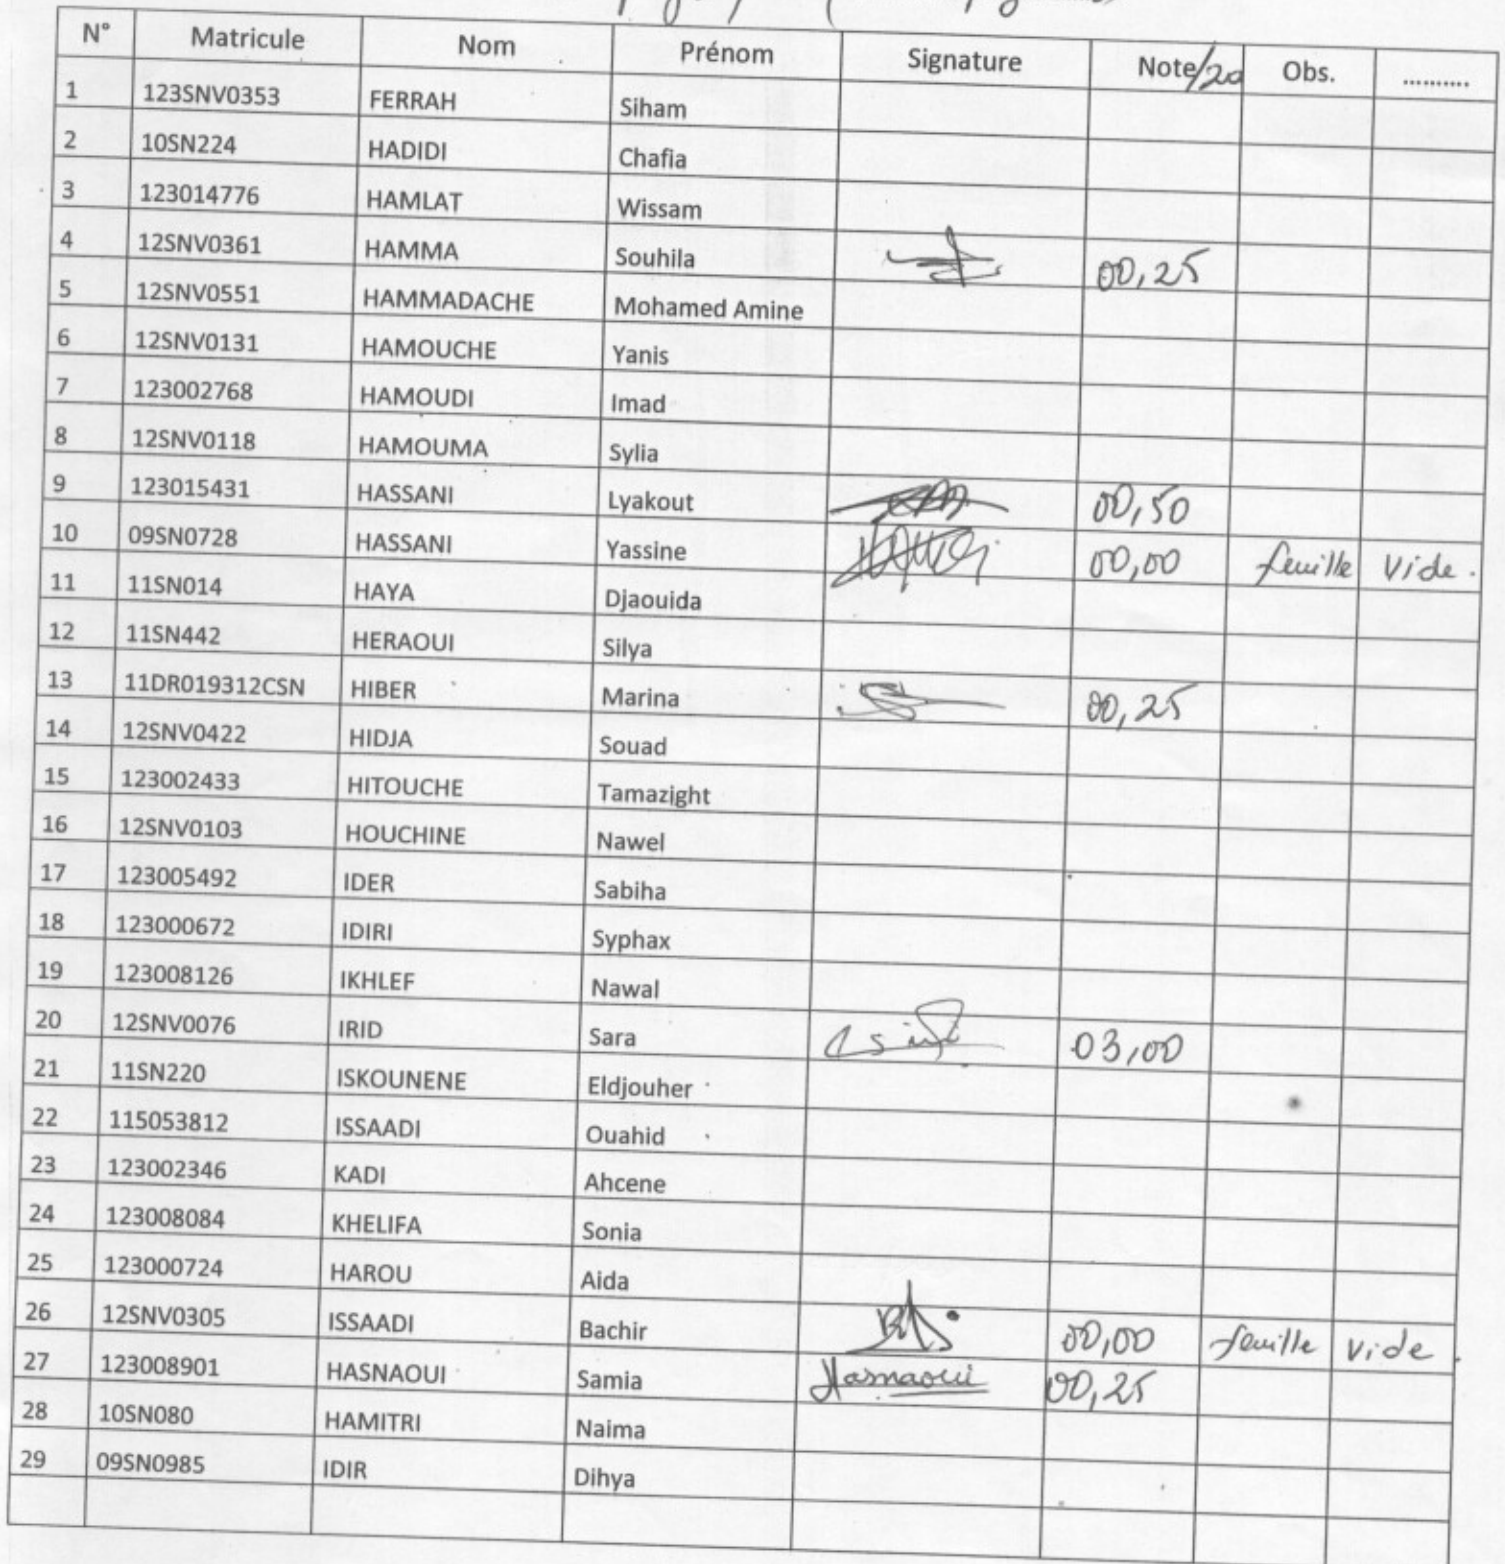 N° Matricule Nom Prénom Signature Note/20 Obs. ..........
1 123SNV0353 FERRAH Siham
2 10SN224 HADIDI Chafia
3 123014776 HAMLAT Wissam
4 12SNV0361 HAMMA Souhila 00,25
5 12SNV0551 HAMMADACHE Mohamed Amine
6 12SNV0131 HAMOUCHE Yanis
7 123002768 HAMOUDI Imad
8 12SNV0118 HAMOUMA Sylia
9 123015431 HASSANI Lyakout 00,50
10 09SN0728 HASSANI Yassine 00,00 feuille vide.
11 11SN014 HAYA Djaouida
12 11SN442 HERAOUI Silya
13 11DR019312CSN HIBER Marina 00,25
14 12SNV0422 HIDJA Souad
15 123002433 HITOUCHE Tamazight
16 12SNV0103 HOUCHINE Nawel
17 123005492 IDER Sabiha
18 123000672 IDIRI Syphax
19 123008126 IKHLEF Nawal
20 12SNV0076 IRID Sara 03,00
21 11SN220 ISKOUNENE Eldjouher
22 115053812 ISSAADI Ouahid
23 123002346 KADI Ahcene
24 123008084 KHELIFA Sonia
25 123000724 HAROU Aida
26 12SNV0305 ISSAADI Bachir 00,00 feuille vide.
27 123008901 HASNAOUI Samia Hasnaoui 00,25
28 10SN080 HAMITRI Naima
29 09SN0985 IDIR Dihya